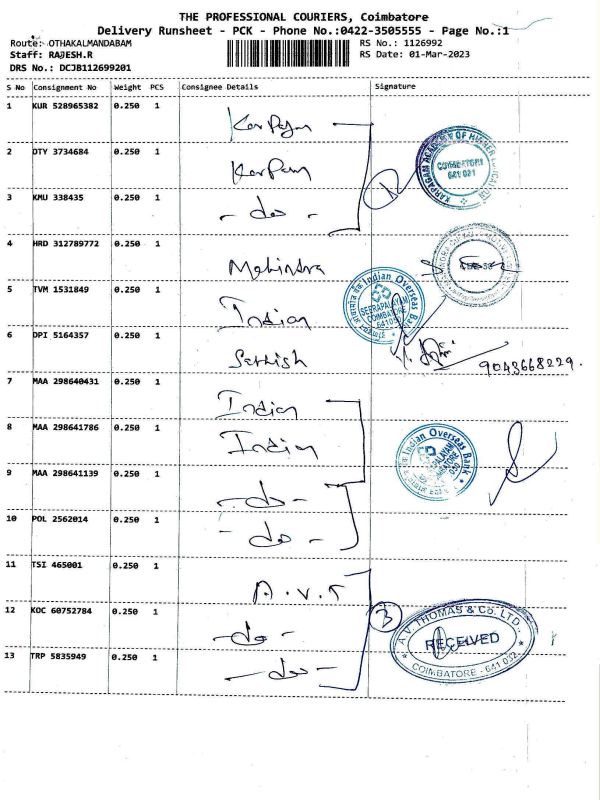 THE PROFESSIONAL COURIERS, Coimbatore
Delivery Runsheet - PCK - Phone No.:0422-3505555 - Page No.:1
Route: OTHAKALMANDABAM RS No.: 1126992
Staff: RAJESH.R RS Date: 01-Mar-2023
DRS No.: DCJB112699201
S No Consignment No Weight PCS Consignee Details Signature
1 KUR 528965382 0.250 1 Karpagm
2 DTY 3734684 0.250 1 Karpam
KARPAGAM ACADEMY OF HIGHER EDUCATION
COIMBATORE
641 021
3 KMU 338435 0.250 1 - do -
4 HRD 312789772 0.250 1 Mahindra
5 TVM 1531849 0.250 1 Indian
Indian Overseas Bank
SEERAPALAYAM
COIMBATORE
6 DPI 5164357 0.250 1 Sathish 9043668229.
7 MAA 298640431 0.250 1 Indian
8 MAA 298641786 0.250 1 Indian
Indian Overseas Bank
9 MAA 298641139 0.250 1 - do -
10 POL 2562014 0.250 1 - do -
11 TSI 465001 0.250 1 A.V.T
12 KOC 60752784 0.250 1 - do - 3
A.V. THOMAS & Co. LTD.,
RECEIVED
COIMBATORE - 641 032
13 TRP 5835949 0.250 1 - do -